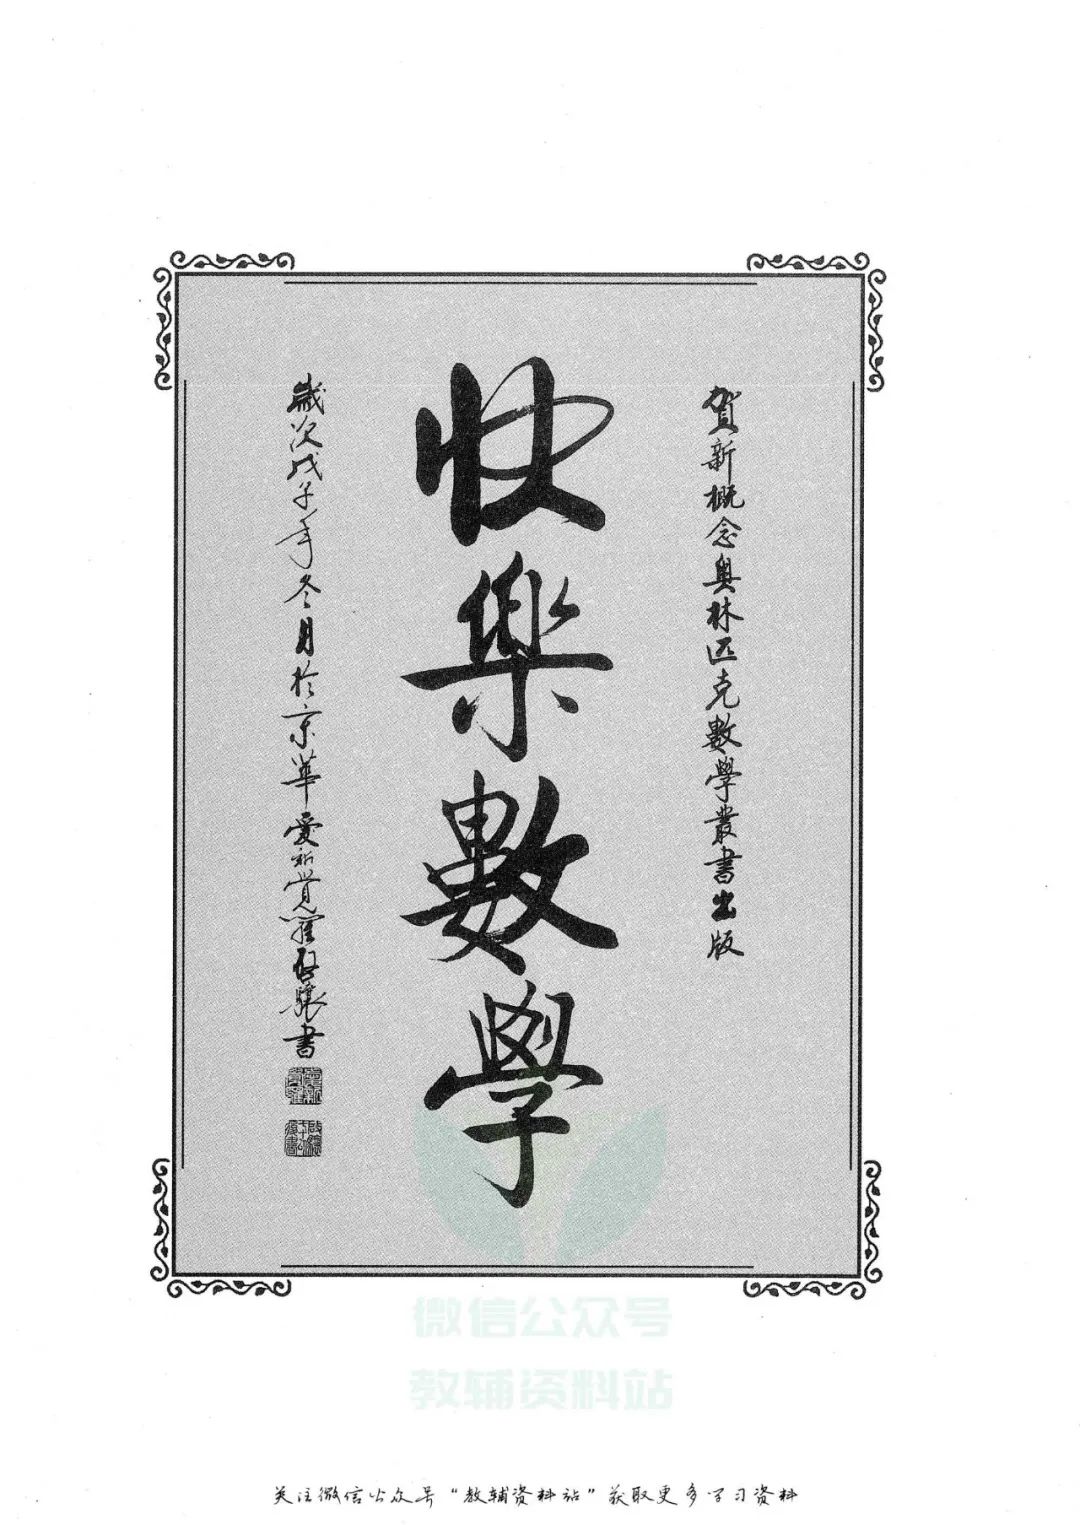 賀新概念奥林匹克數學叢書出版
快樂數學
歲次戊子年冬月於京華愛新覺羅啟驤書
微信公众号
教辅资料站
关注微信公众号“教辅资料站”获取更多学习资料